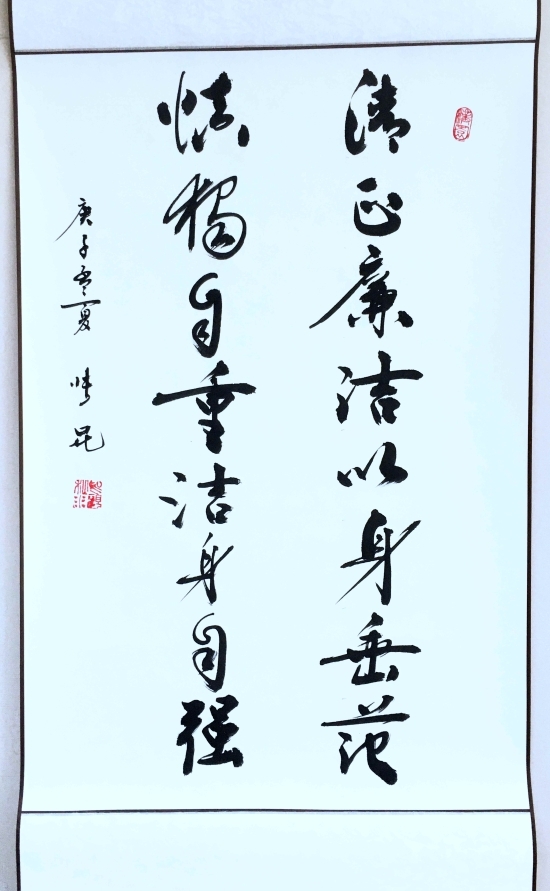 清正廉洁以身垂范
慎獨自重洁身自强
庚子孟夏